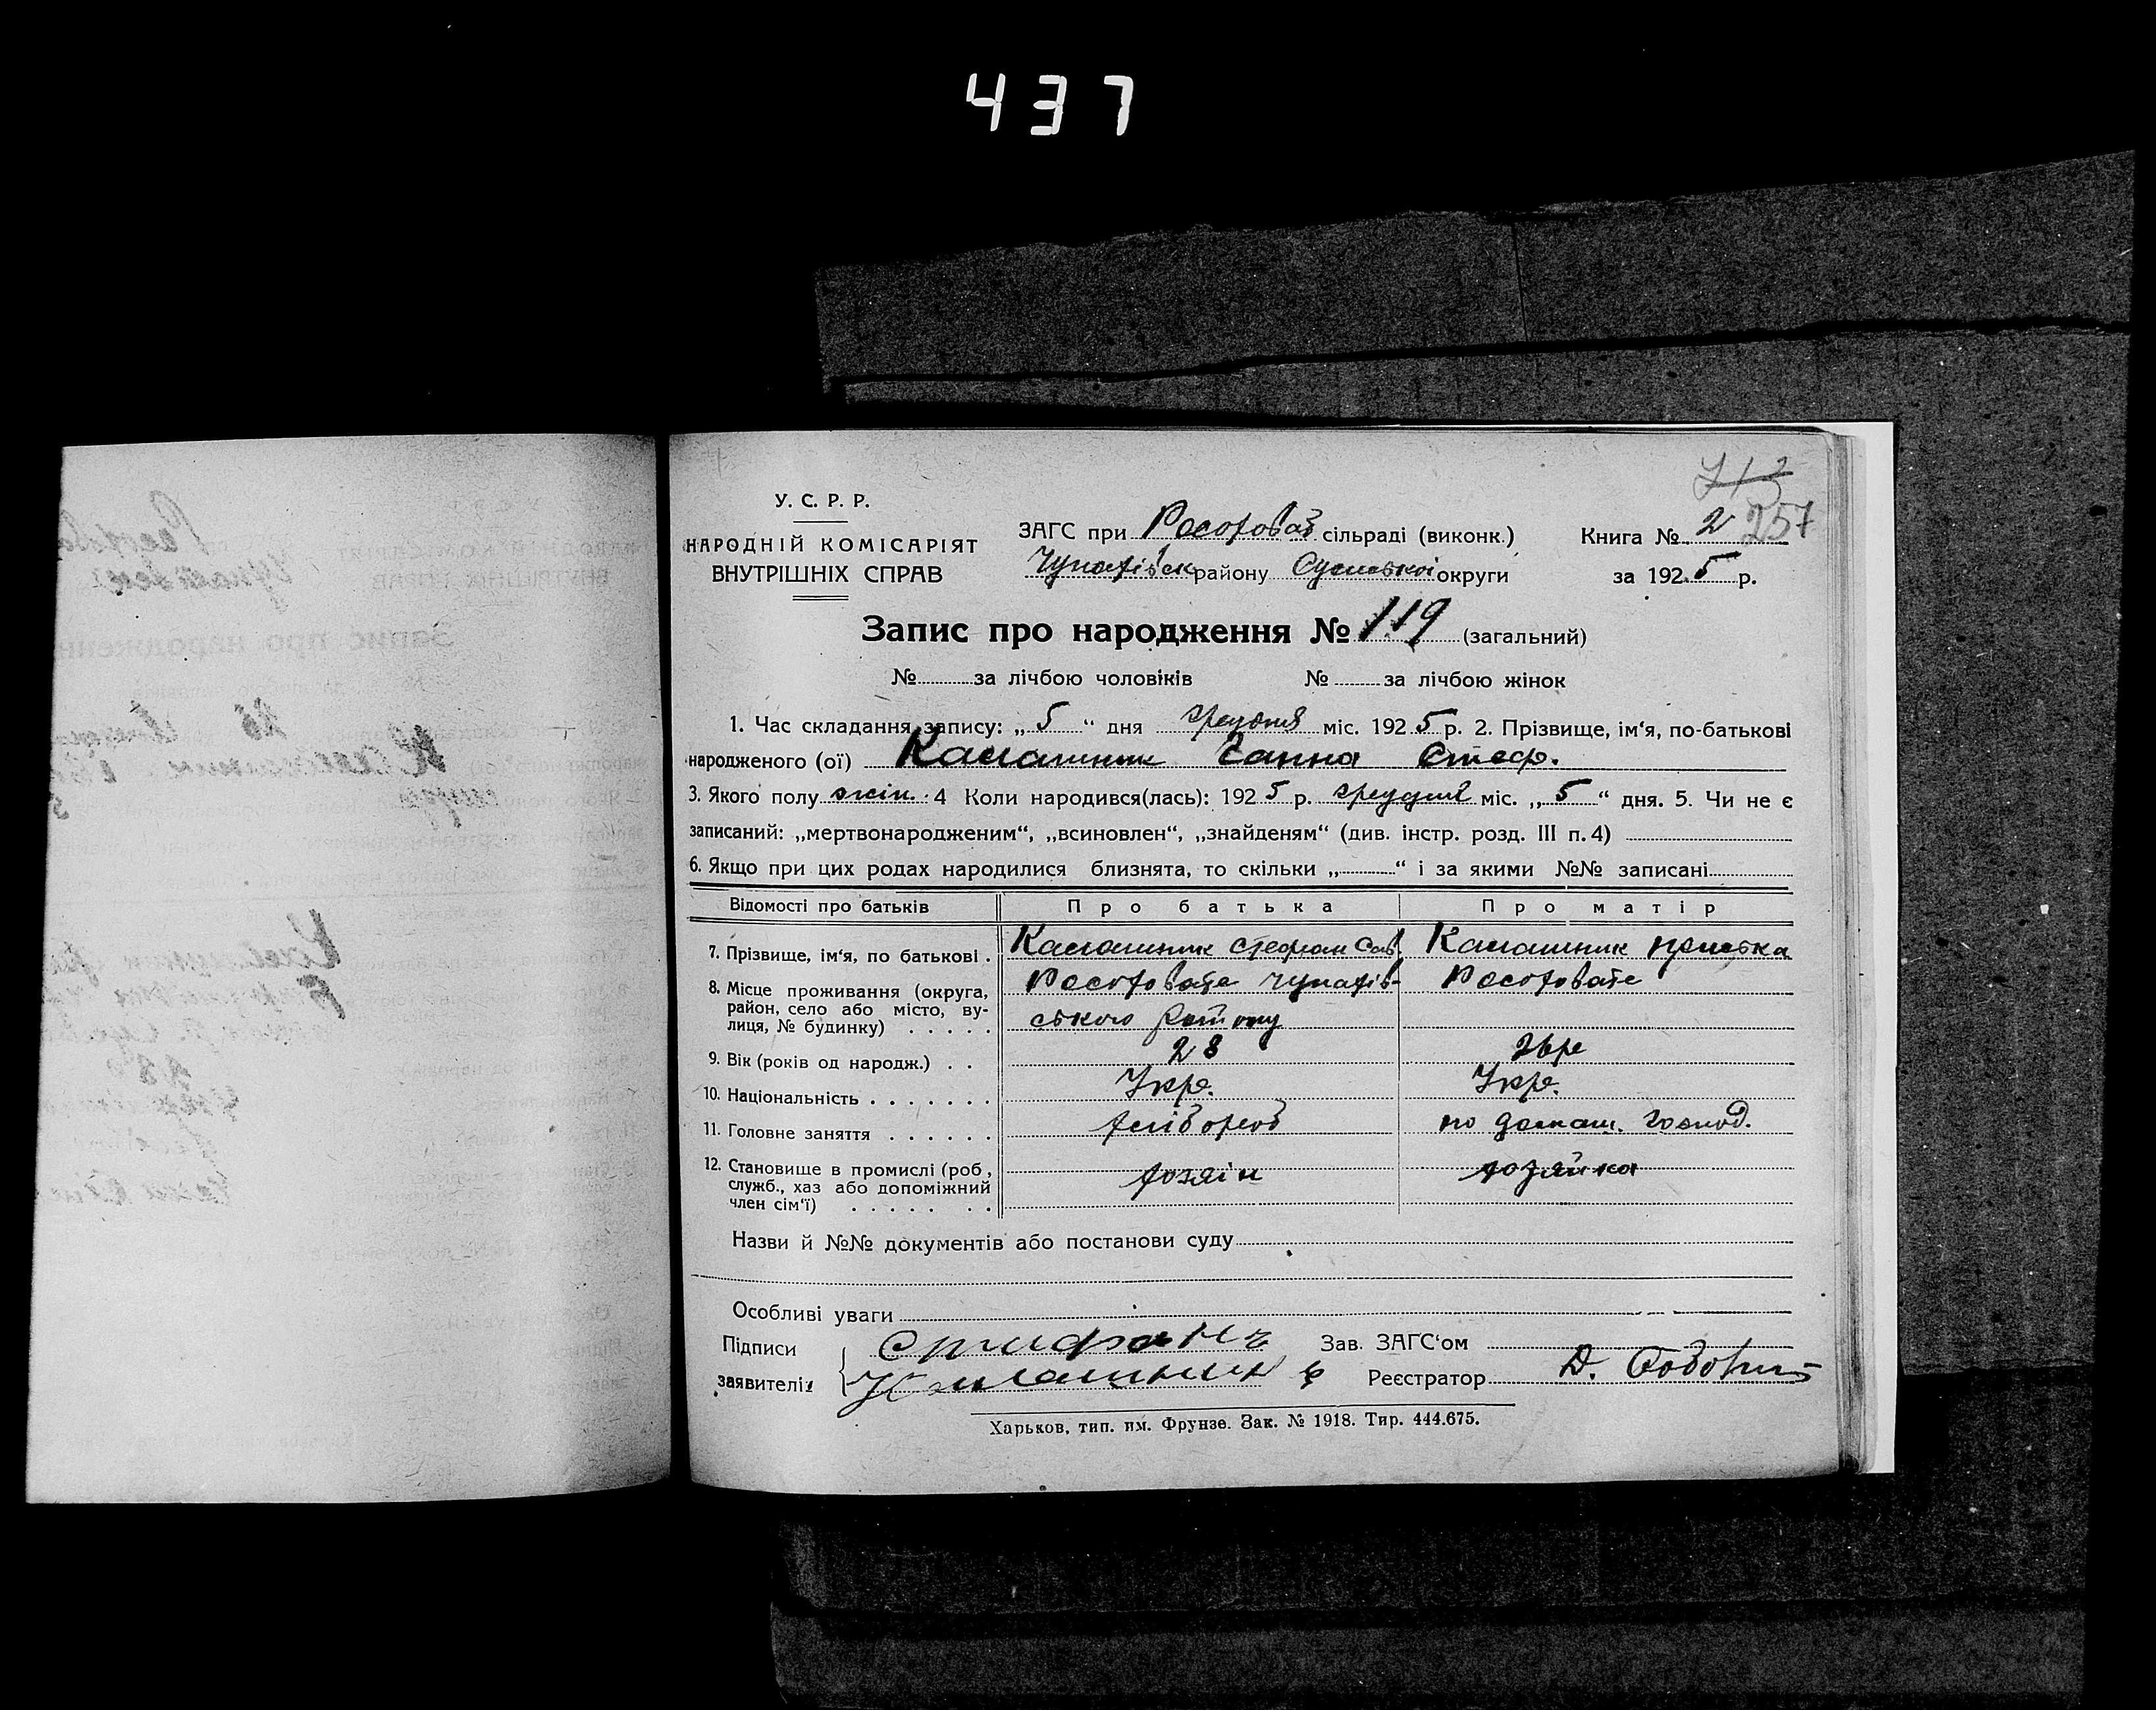 437
712
257
У. С. Р. Р.
НАРОДНІЙ КОМІСАРІЯТ
ВНУТРІШНІХ СПРАВ
ЗАГС при Росоховат сільраді (виконк.)
Чупахівск району Сумської округи
Книга № 2
за 1925 р.
Запис про народження № 119 (загальний)
№ за лічбою чоловіків № за лічбою жінок
1. Час складання запису: „ 5 “ дня грудня міс. 1925 р. 2. Прізвище, ім'я, по-батькові
народженого (ої) Калашник Ганна Стеф.
3. Якого полу жін. 4 Коли народився(лась): 1925 р. грудня міс. „ 5 “ дня. 5. Чи не є
записаний: „мертвонародженим“, „всиновлен“, „знайденям“ (див. інстр. розд. III п. 4)
6. Якщо при цих родах народилися близнята, то скільки „ “ і за якими №№ записані
Відомості про батьків Про батька Про матір
7. Прізвище, ім'я, по батькові . Калашник Стефан Сав. Калашник Приська
8. Місце проживання (округа, Росоховате Чупахів- Росоховате
район, село або місто, ву- ського Району
лиця, № будинку) . . . . .
9. Вік (років од народж.) . . 28 26 р
10. Національність . . . . . . . Укр. Укр.
11. Головне заняття . . . . . . хлібороб по домаш. господ.
12. Становище в промислі (роб, хозяїн хозяйка
служб., хаз або допоміжний
член сім'ї) . . . . . . .
Назви й №№ документів або постанови суду
Особливі уваги
Підписи Стифанъ Зав. ЗАГС'ом
заявителів Калашник Реєстратор Д.
Харьков, тип. им. Фрунзе. Зак. № 1918. Тир. 444.675.